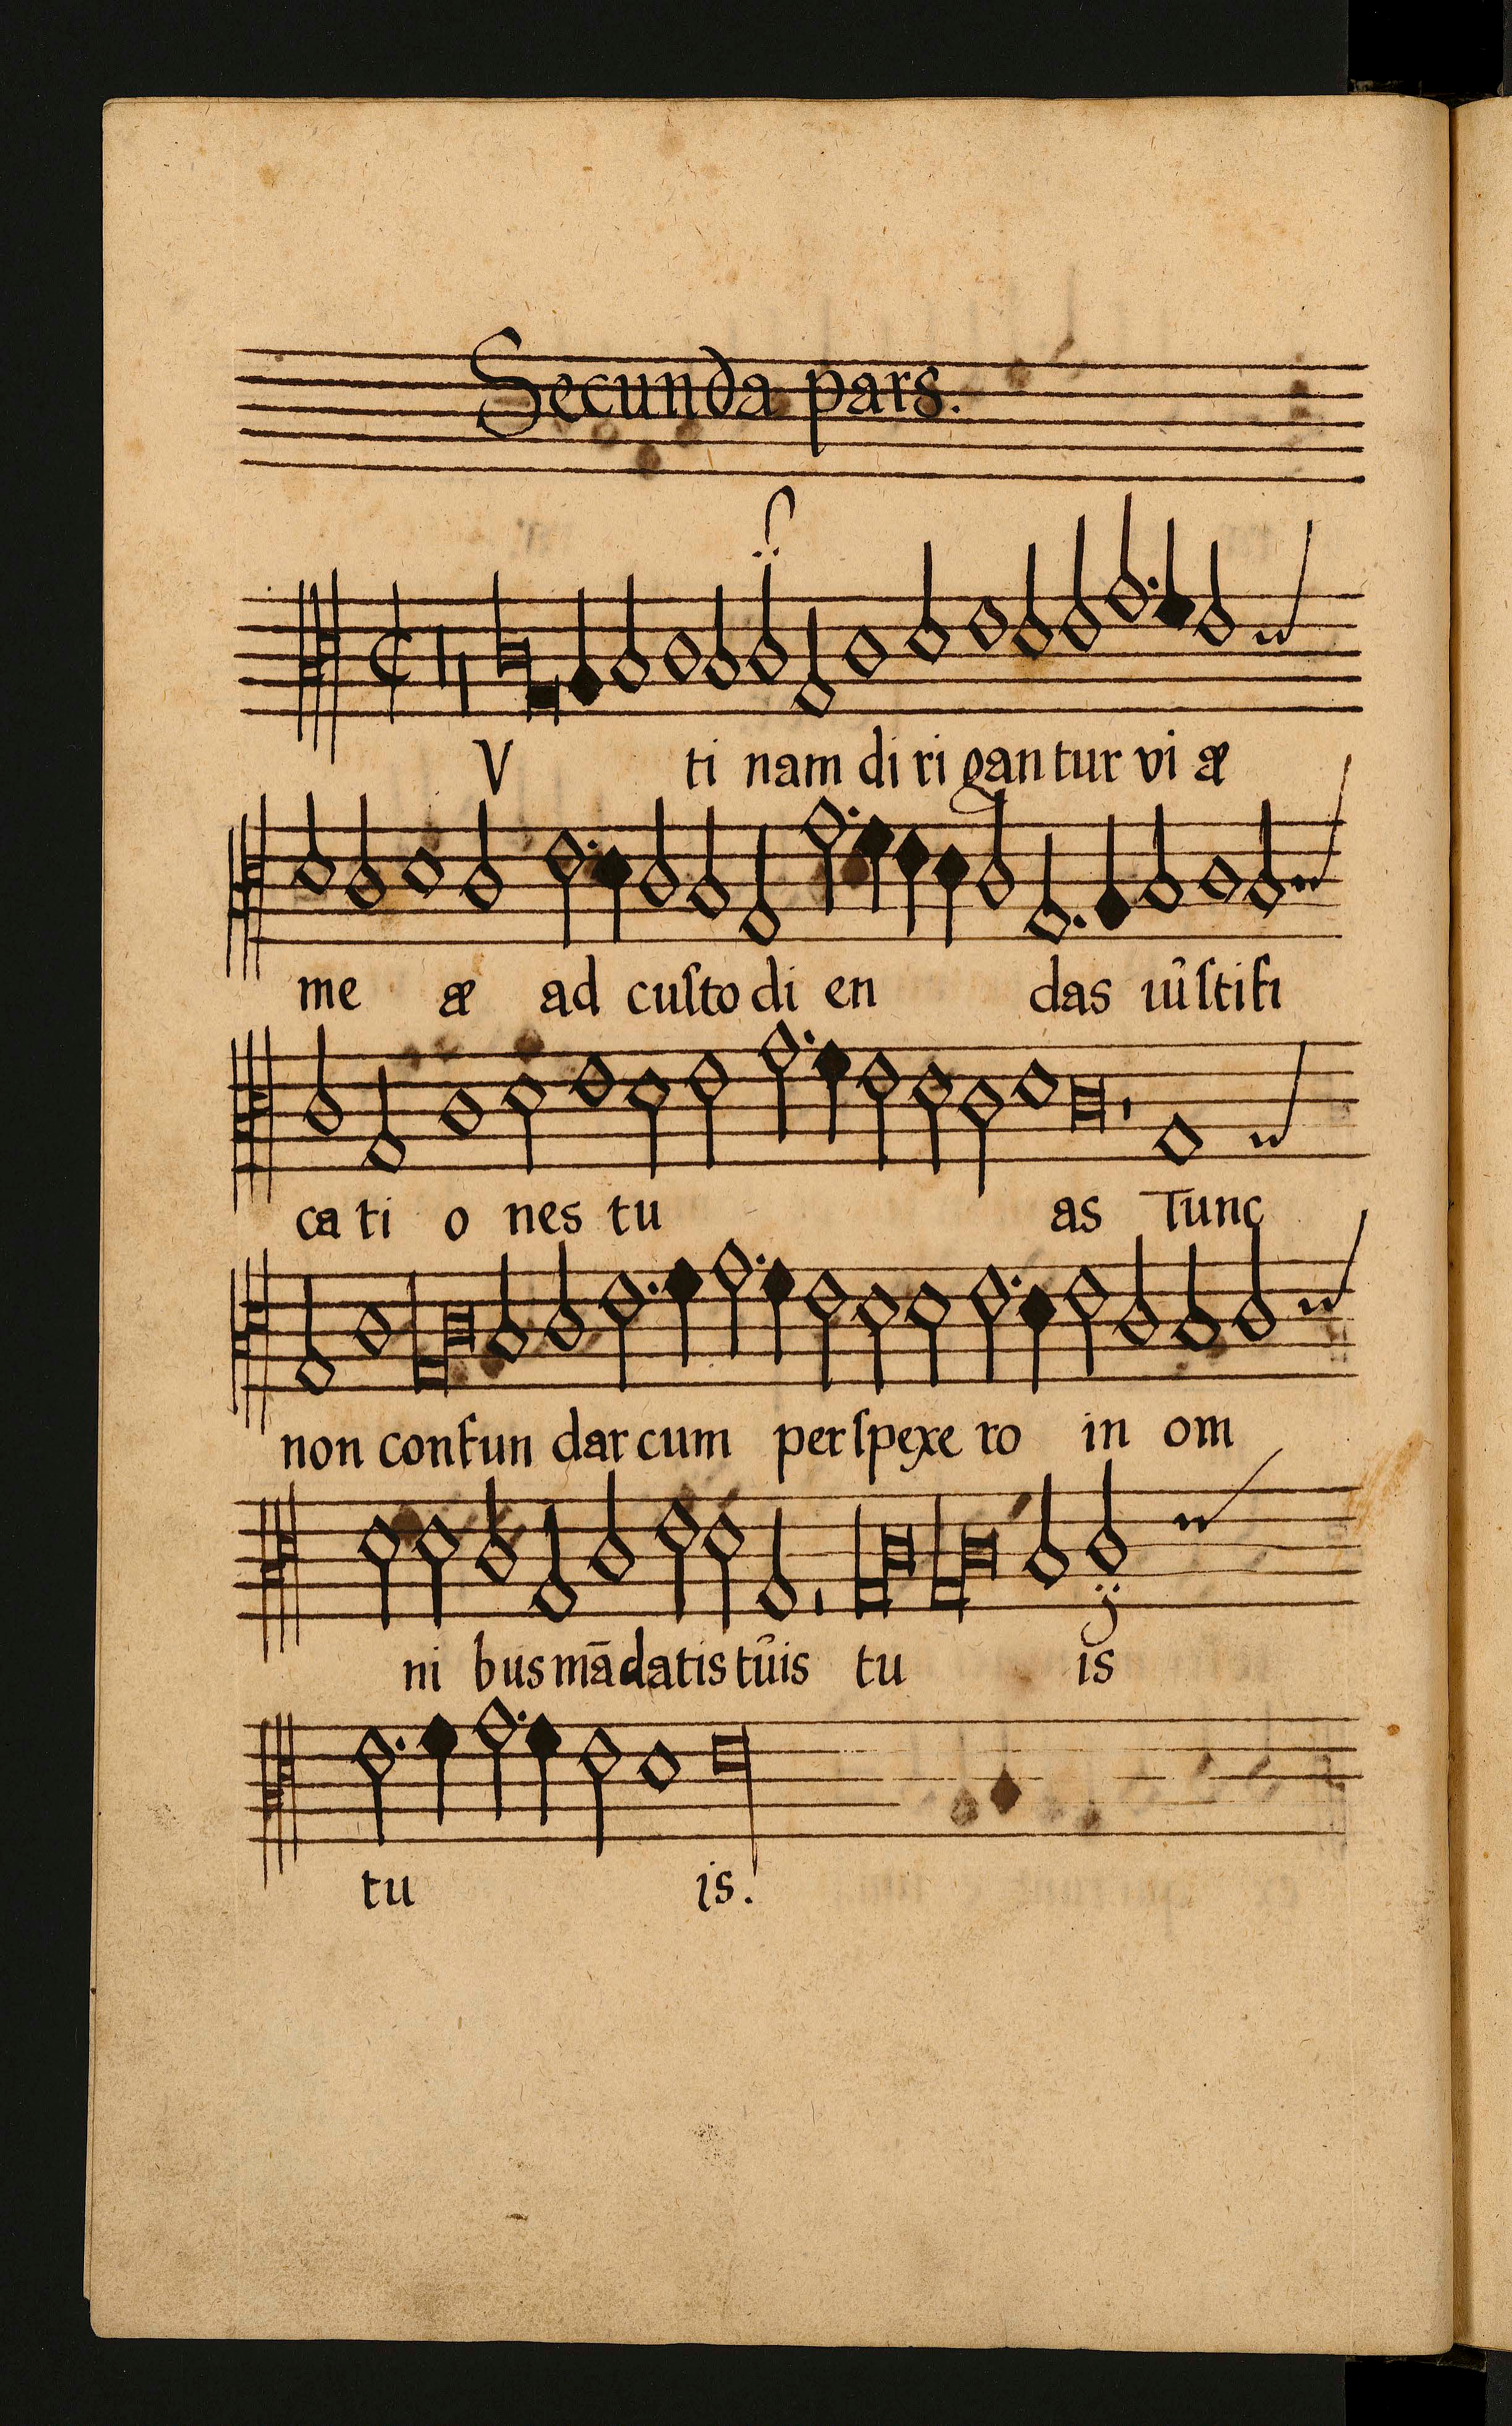 Secunda pars.
V ti nam di ri gan tur vi æ
me æ ad cuſto di en das iuſtifi
ca ti o nes tu as Tunc
non confun dar cum perſpexe ro in om
ni bus mādatis tuis tu is
tu is.